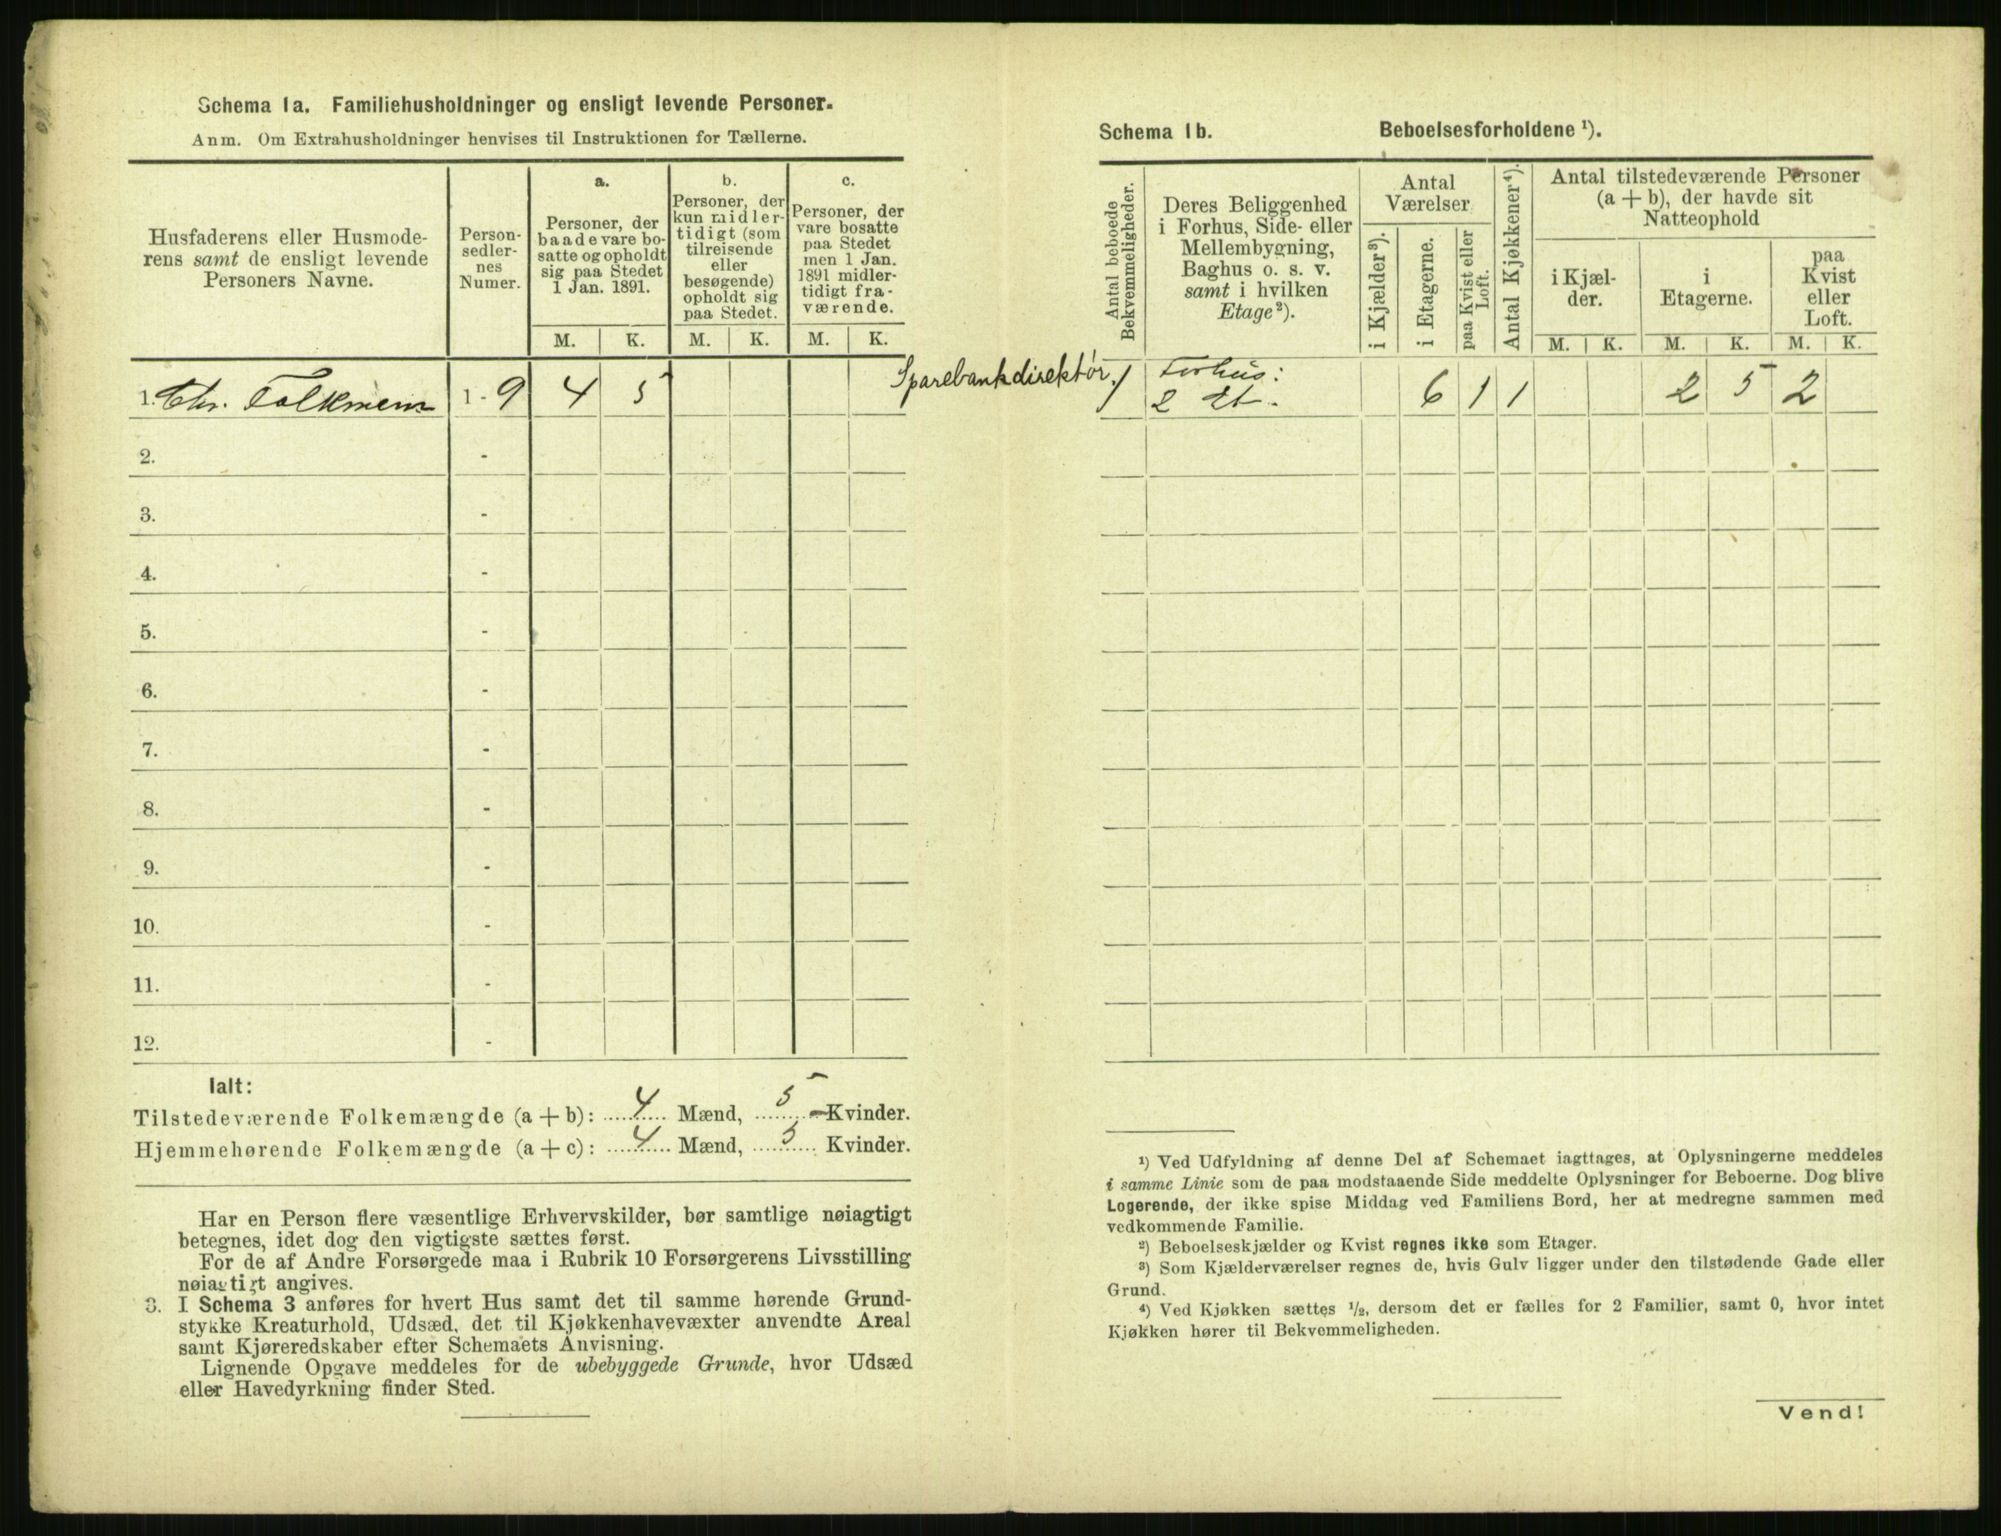 Schema 1a. Familiehusholdninger og ensligt levende Personer.
Anm. Om Extrahusholdninger henvises til Instruktionen for Tællerne.
Husfaderens eller Husmode-
rens samt de ensligt levende
Personers Navne.
Person-
sedler-
nes
Numer.
a.
Personer, der
baade vare bo-
satte og opholdt
sig paa Stedet
1 Jan. 1891.
b.
Personer, der
kun midler-
tidigt (som
tilreisende
eller
besøgende)
opholdt sig
paa Stedet.
c.
Personer, der
vare bosatte
paa Stedet
men 1 Jan.
1891 midler-
tidigt fra-
værende.
M. K. M. K. M. K.
1. Chr. 1 - 9 4 5 Sparebankdirektør.
2. -
3. -
4. -
5. -
6. -
7. -
8. -
9. -
10. -
11. -
12. -
Ialt:
Tilstedeværende Folkemængde (a + b): 4 Mænd, 5 Kvinder.
Hjemmehørende Folkemængde (a + c): 4 Mænd, 5 Kvinder.
Har en Person flere væsentlige Erhvervskilder, bør samtlige nøiagtigt
betegnes, idet dog den vigtigste sættes først.
For de af Andre Forsørgede maa i Rubrik 10 Forsørgerens Livsstilling
nøiagtigt angives.
3. I Schema 3 anføres for hvert Hus samt det til samme hørende Grund-
stykke Kreaturhold, Udsæd, det til Kjøkkenhavevæxter anvendte Areal
samt Kjøreredskaber efter Schemaets Anvisning.
Lignende Opgave meddeles for de ubebyggede Grunde, hvor Udsæd
eller Havedyrkning finder Sted.
Schema 1b. Beboelsesforholdene ¹).
Antal beboede
Bekvemmeligheder.
Deres Beliggenhed
i Forhus, Side- eller
Mellembygning,
Baghus o. s. v.
samt i hvilken
Etage²).
Antal
Værelser
i Kjælder³).
i Etagerne.
paa Kvist eller
Loft.
Antal Kjøkkener⁴).
Antal tilstedeværende Personer
(a + b), der havde sit
Natteophold
i Kjæl-
der.
i
Etagerne.
paa
Kvist
eller
Loft.
M. K. M. K. M. K.
1 Forhus:
2 Et. 6 1 1 2 5 2
¹) Ved Udfyldning af denne Del af Schemaet iagttages, at Oplysningerne meddeles
i samme Linie som de paa modstaaende Side meddelte Oplysninger for Beboerne. Dog blive
Logerende, der ikke spise Middag ved Familiens Bord, her at medregne sammen med
vedkommende Familie.
²) Beboelseskjælder og Kvist regnes ikke som Etager.
³) Som Kjælderværelser regnes de, hvis Gulv ligger under den tilstødende Gade eller
Grund.
⁴) Ved Kjøkken sættes ¹/₂, dersom det er fælles for 2 Familier, samt 0, hvor intet
Kjøkken hører til Bekvemmeligheden.
Vend!